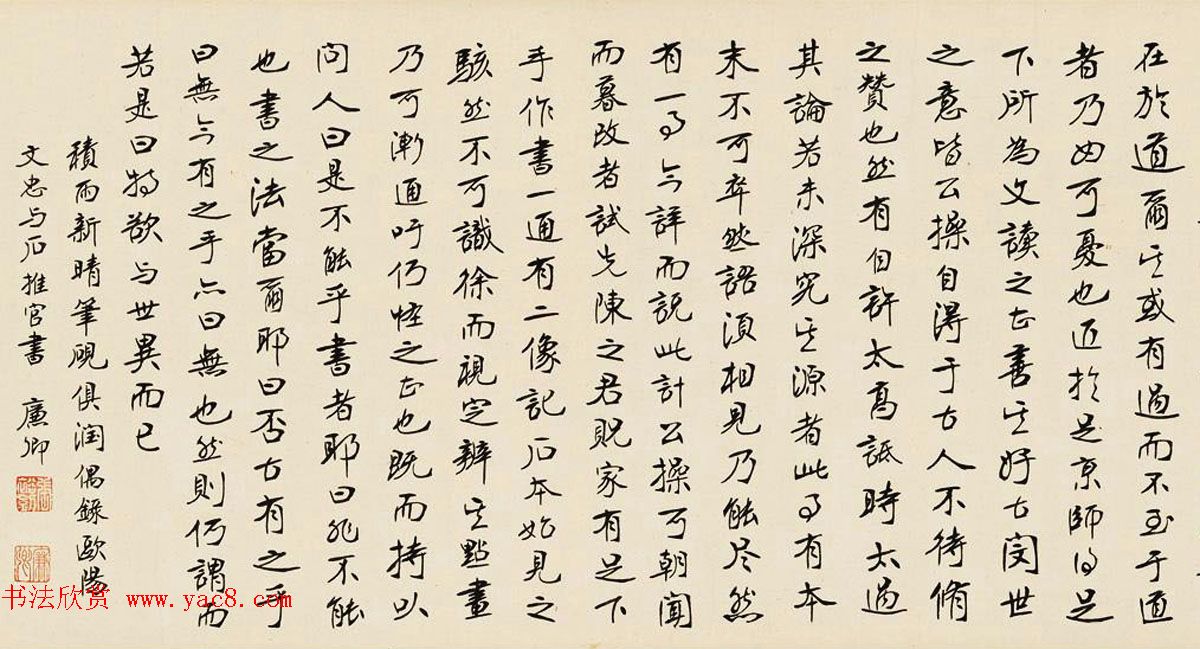 在於道爾其或有過而不至于道
者乃可憂也近於足京師得足
下所為文讀之甚善其好古閔世
之意皆公操自得于古人不待脩
之贊也然有自許太高詆時太過
其論若未深究其源者此事有本
末不可卒然語須相見乃能尽然
有一事今詳而說此計公操可朝聞
而暮改者試先陳之君貺家有足下
手作書一通有二像記石本始見之
駭然不可識徐而視定辨其點畫
乃可漸通吁何怪之甚也既而持以
問人曰是不能乎書者耶曰非不能
也書之法當爾耶曰否古有之乎
曰無今有之乎亦曰無也然則何謂而
若是曰特欲与世異而已
積雨新晴筆硯俱潤偶錄歐陽
文忠与石推官書 廉卿
书法欣赏 www.yac8.com